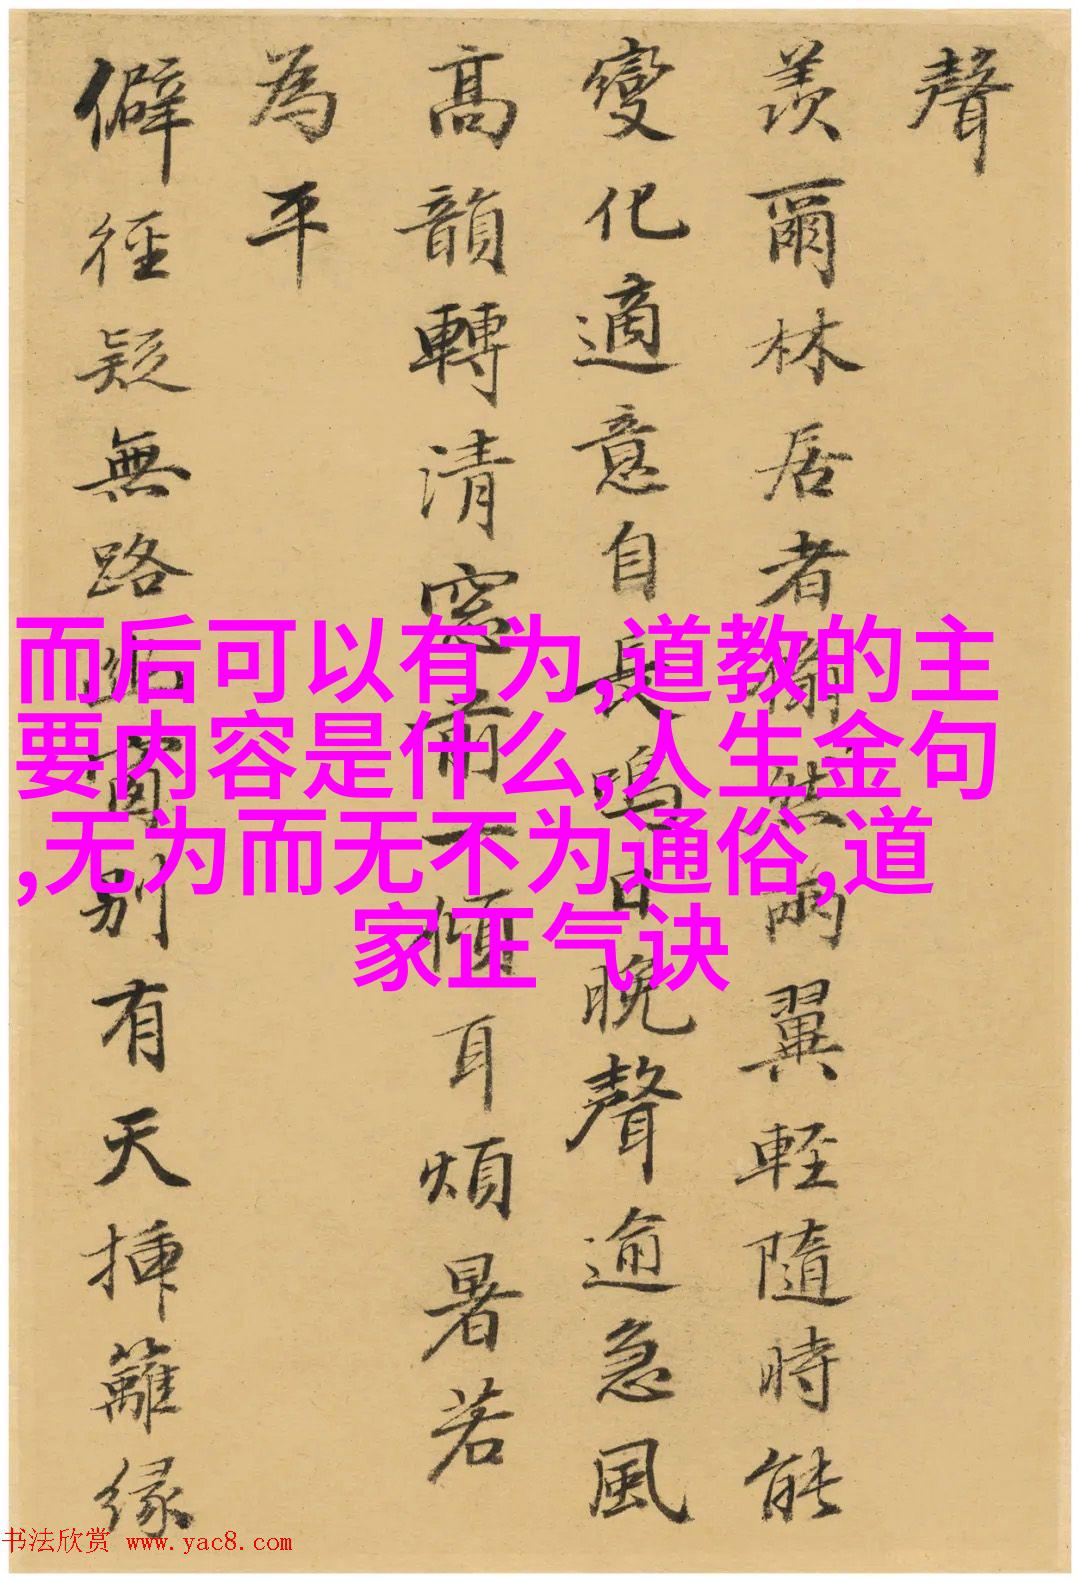 聲
羨爾林居者翛然兩翼輕隨時能
變化適意自長鳴日晚聲逾急風
高韻轉清窓前一傾耳煩暑若
為平
僻徑疑無路幽窗別有天揷籬緣
而后可以有为,道教的主
要内容是什么,人生金句
,无为而无不为通俗,道
家正气诀
书法欣赏 www.yac8.com